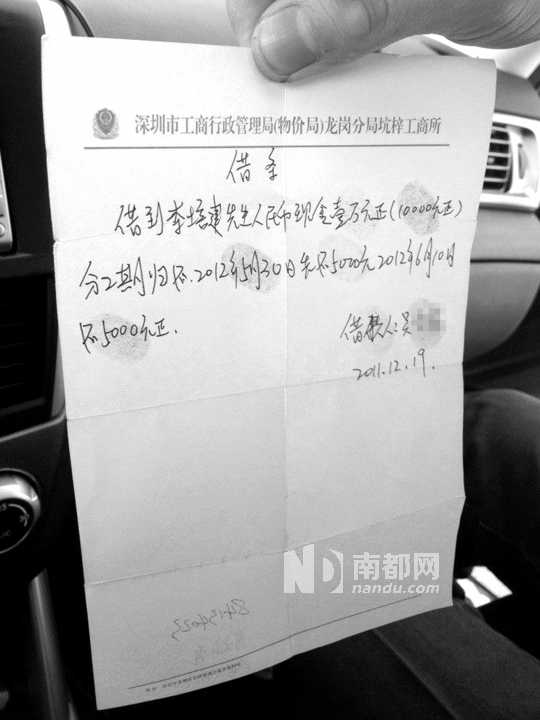 深圳市工商行政管理局(物价局)龙岗分局坑梓工商所
借条
借到李培建先生人民币现金壹万元正(10000元正)
分二期归还.2012年5月30日先还5000元2012年6月10日
还5000元正.
借款人:吴
2011.12.19.
ND 南都网
nandu.com